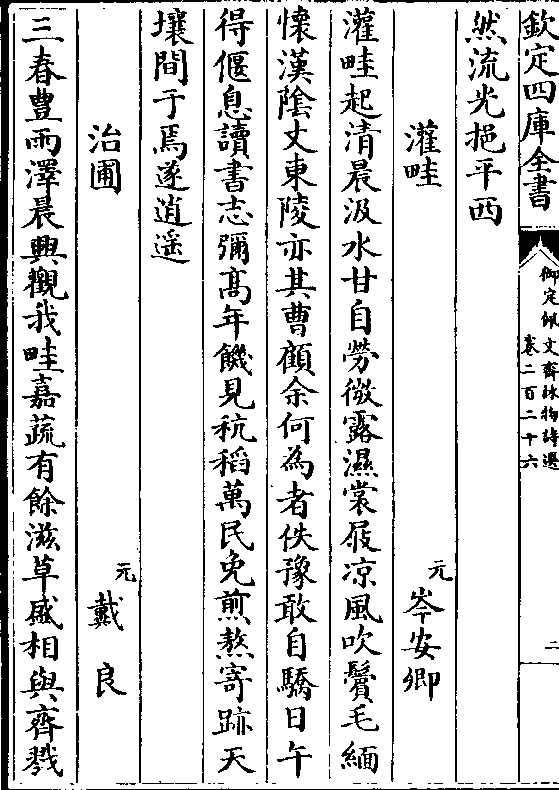 欽定四庫全書
御定佩文齋詠物詩選
卷二百二十六
二
然流光挹平西
灌畦
元
岑安卿
灌畦起清晨汲水甘自勞微露濕裳屐凉風吹鬢毛緬
懷漢陰丈東陵亦其曹顧余何為者佚豫敢自驕日午
得偃息讀書志彌髙年饑見秔稻萬民免煎熬寄跡天
壤間于焉遂逍遥
治圃
元
戴良
三春豐雨澤晨興觀我畦嘉蔬有餘滋草盛相與齊戮